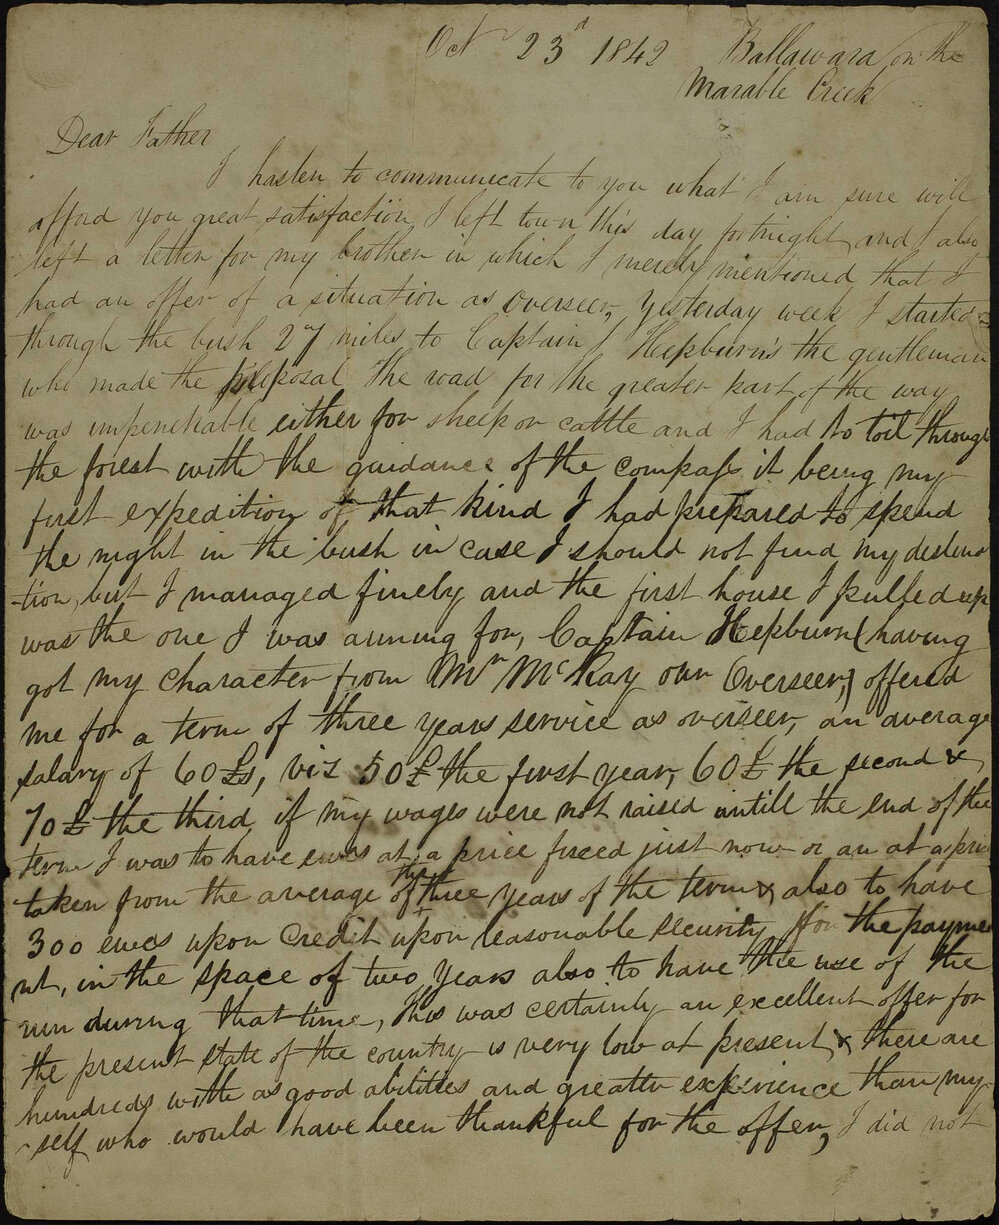 Oct 23d 1842 Ballawara on the
Marable Creek
Dear Father
I hasten to communicate to you what I am sure will
afford you great satisfaction I left town this day fortnight and I also
left a letter for my brother in which I merely mentioned that I
had an offer of a situation as overseer, Yesterday week I started
through the bush 27 miles to Captain Hepburn's the gentleman
who made the proposal The road for the greater part of the way
was impenetrable either for sheep or cattle and I had to toil through
the forest with the guidance of the compass it being my
first expedition of that kind I had prepared to spend
the night in the bush in case I should not find my destina
-tion, but I managed finely and the first house I pulled up
was the one I was aiming for, Captain Hepburn (having
got my character from Mr McKay our Overseer,) offered
me for a term of three years service as overseer, an average
salary of 60£s, viz 50£ the first year, 60£ the second &
70£ the third if my wages were not raised untill the end of the
term I was to have ewes at a price fixed just now or an at a price
taken from the average of the three years of the term & also to have
300 ewes upon Credit upon reasonable security for the payme
nt, in the space of two years also to have the use of the
run during that time, this was certainly an excellent offer for
the present state of the country is very low at present & there are
hundreds with as good abilities and greater experience than my
-self who would have been thankful for the offer, I did not